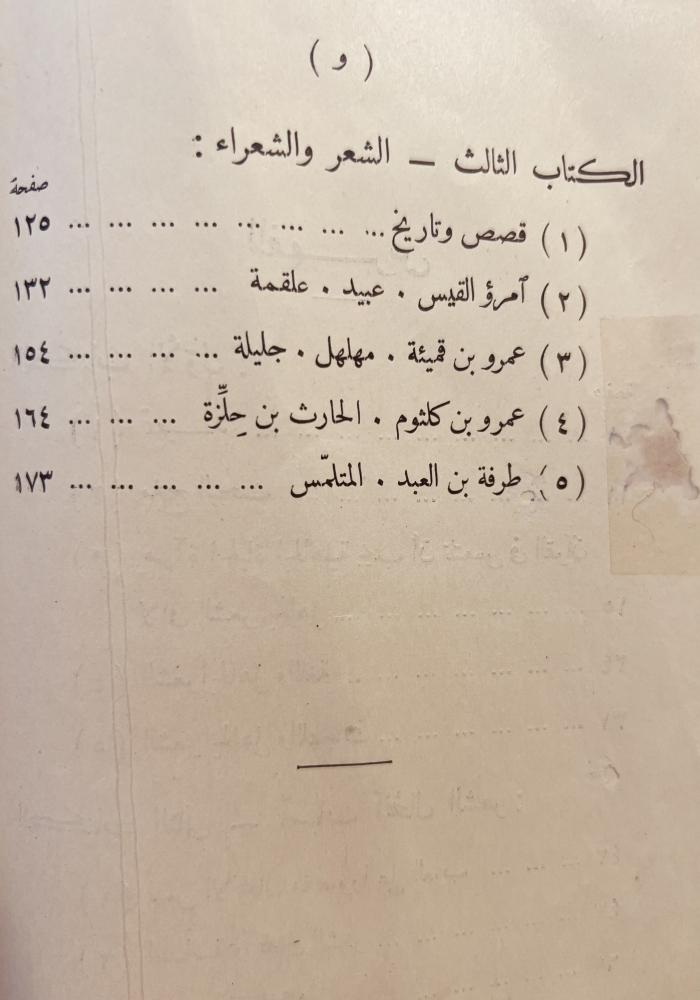 ( و )
الكتاب الثالث — الشعر والشعراء :
صفحة
(١) قصص وتاريخ ... ... ... ... ... ... ... ... ١٢٥
(٢) آمرؤ القيس . عبيد . علقمة ... ... ... ... ١٣٢
(٣) عمرو بن قميئة . مهلهل . جليلة ... ... ... ... ١٥٤
(٤) عمرو بن كلثوم . الحارث بن حِلِّزة ... ... ... ١٦٤
(٥) طرفة بن العبد . المتلمّس ... ... ... ... ... ١٧٣